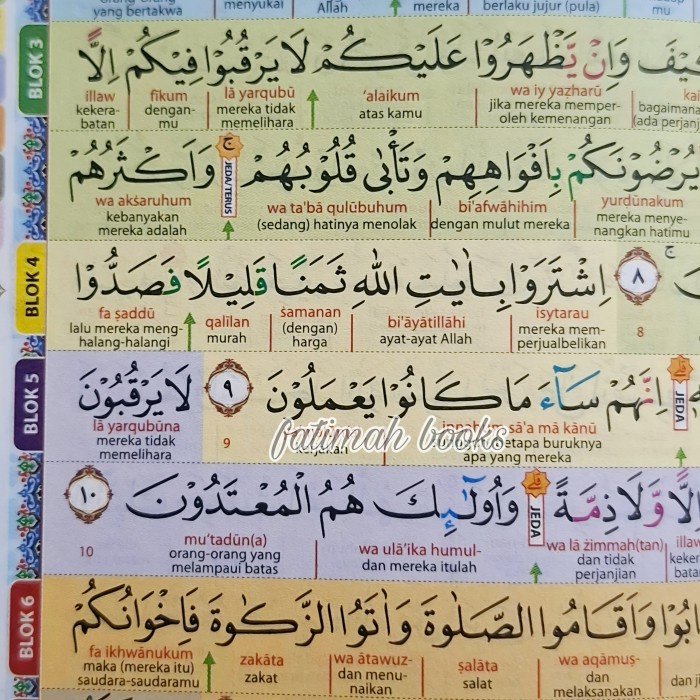 menyukai Allah mereka berlaku jujur (pula)
yang bertakwa
BLOK 3
وَاِنْ يَّظْهَرُوْا عَلَيْكُمْ لَا يَرْقُبُوْا فِيْكُمْ اِلًّا
wa iy yaẓharū ‘alaikum lā yarqubū fīkum illaw
jika mereka memperoleh kemenangan atas kamu mereka tidak memelihara denganmu kekerabatan
يُرْضُوْنَكُمْ بِاَفْوَاهِهِمْ وَتَأْبٰى قُلُوْبُهُمْ ۚ وَاَكْثَرُهُمْ
JEDA/TERUS
yurḍūnakum bi'afwāhihim wa ta'bā qulūbuhum wa akṡaruhum
mereka menyenangkan hatimu dengan mulut mereka (sedang) hatinya menolak kebanyakan mereka adalah
BLOK 4
٨ اِشْتَرَوْا بِاٰيٰتِ اللّٰهِ ثَمَنًا قَلِيْلًا فَصَدُّوْا
8 isytarau bi'āyātillāhi ṡamanan qalīlan fa ṣaddū
mereka memperjualbelikan ayat-ayat Allah (dengan) harga murah lalu mereka menghalang-halangi
BLOK 5
JEDA
اِنَّهُمْ سَاۤءَ مَا كَانُوْا يَعْمَلُوْنَ ٩ لَا يَرْقُبُوْنَ
sā'a mā kānū 9 lā yarqubūna
betapa buruknya apa yang mereka kerjakan mereka tidak memelihara
fatimah books
وَّلَا ذِمَّةً ۗ وَاُولٰۤىِٕكَ هُمُ الْمُعْتَدُوْنَ ١٠
JEDA
wa lā żimmah(tan) wa ulā'ika humul- mu‘tadūn(a) 10
dan tidak perjanjian dan mereka itulah orang-orang yang melampaui batas
BLOK 6
وَاَقَامُوا الصَّلٰوةَ وَاٰتَوُا الزَّكٰوةَ فَاِخْوَانُكُمْ
wa aqāmuṣ- ṣalāta wa ātawuz- zakāta fa ikhwānukum
dan melaksanakan salat dan menunaikan zakat maka (mereka itu) saudara-saudaramu